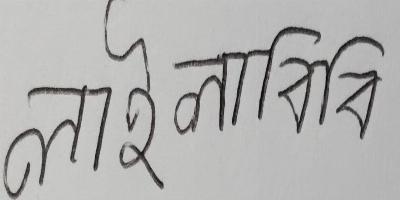 লাইলাবিবি